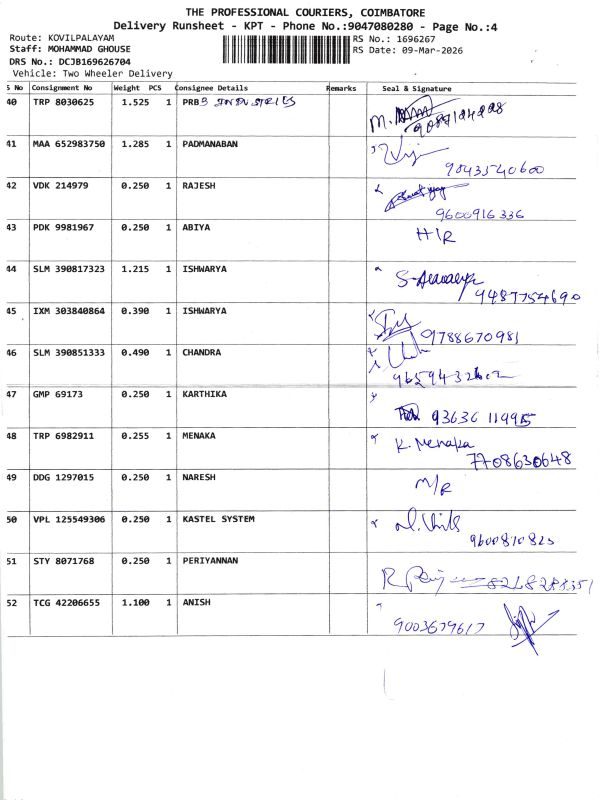 THE PROFESSIONAL COURIERS, COIMBATORE
Delivery Runsheet - KPT - Phone No.:9047080280 - Page No.:4
Route: KOVILPALAYAM RS No.: 1696267
Staff: MOHAMMAD GHOUSE RS Date: 09-Mar-2026
DRS No.: DCJB169626704
Vehicle: Two Wheeler Delivery
S No Consignment No Weight PCS Consignee Details Remarks Seal & Signature
40 TRP 8030625 1.525 1 PRB
41 MAA 652983750 1.285 1 PADMANABAN
9843540600
42 VDK 214979 0.250 1 RAJESH
9600916336
43 PDK 9981967 0.250 1 ABIYA H/R
44 SLM 390817323 1.215 1 ISHWARYA
9487754690
45 IXM 303840864 0.390 1 ISHWARYA
9788670981
46 SLM 390851333 0.490 1 CHANDRA
47 GMP 69173 0.250 1 KARTHIKA
93636 11995
48 TRP 6982911 0.255 1 MENAKA K. Menaka
7708630648
49 DDG 1297015 0.250 1 NARESH M/R
50 VPL 125549306 0.250 1 KASTEL SYSTEM
51 STY 8071768 0.250 1 PERIYANNAN
8248288351
52 TCG 42206655 1.100 1 ANISH
9003679617